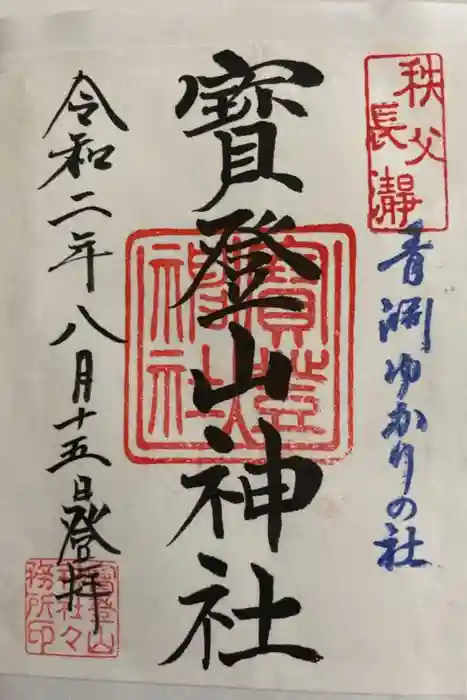 秩父
長瀞
青淵ゆかりの社
寳登山神社
寳登山
神社
令和二年八月十五日登拝
寳登山
神社々
務所印